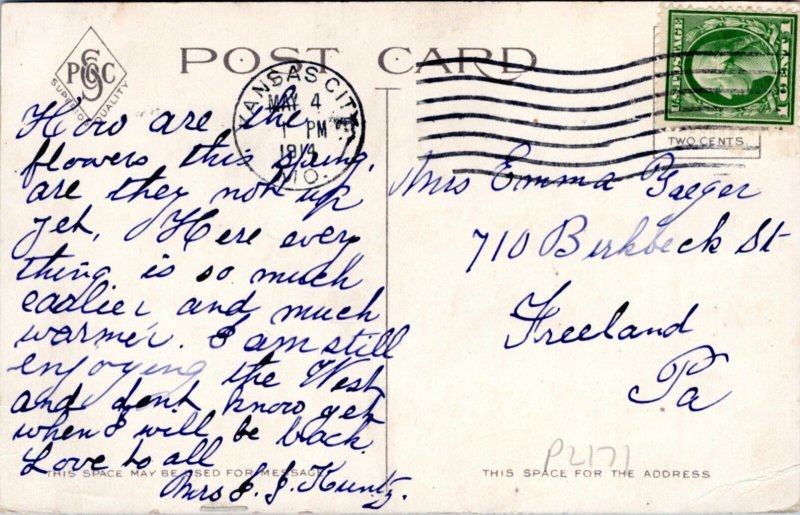 POST CARD
PSC
SUPERIOR QUALITY
KANSAS CITY
MAY 4
1 PM
1914
MO.
TWO CENTS.
How are the
flowers this spring,
are they not up
yet, Here every
thing is so much
earlier and much
warmer. I am still
enjoying the West
and dont know yet
when I will be back.
Love to all
Mrs J. J. Kuntz.
Mrs Emma Yaeger
710 Birkbeck St
Freeland
Pa
P2171
THIS SPACE MAY BE USED FOR MESSAGE
THIS SPACE FOR THE ADDRESS